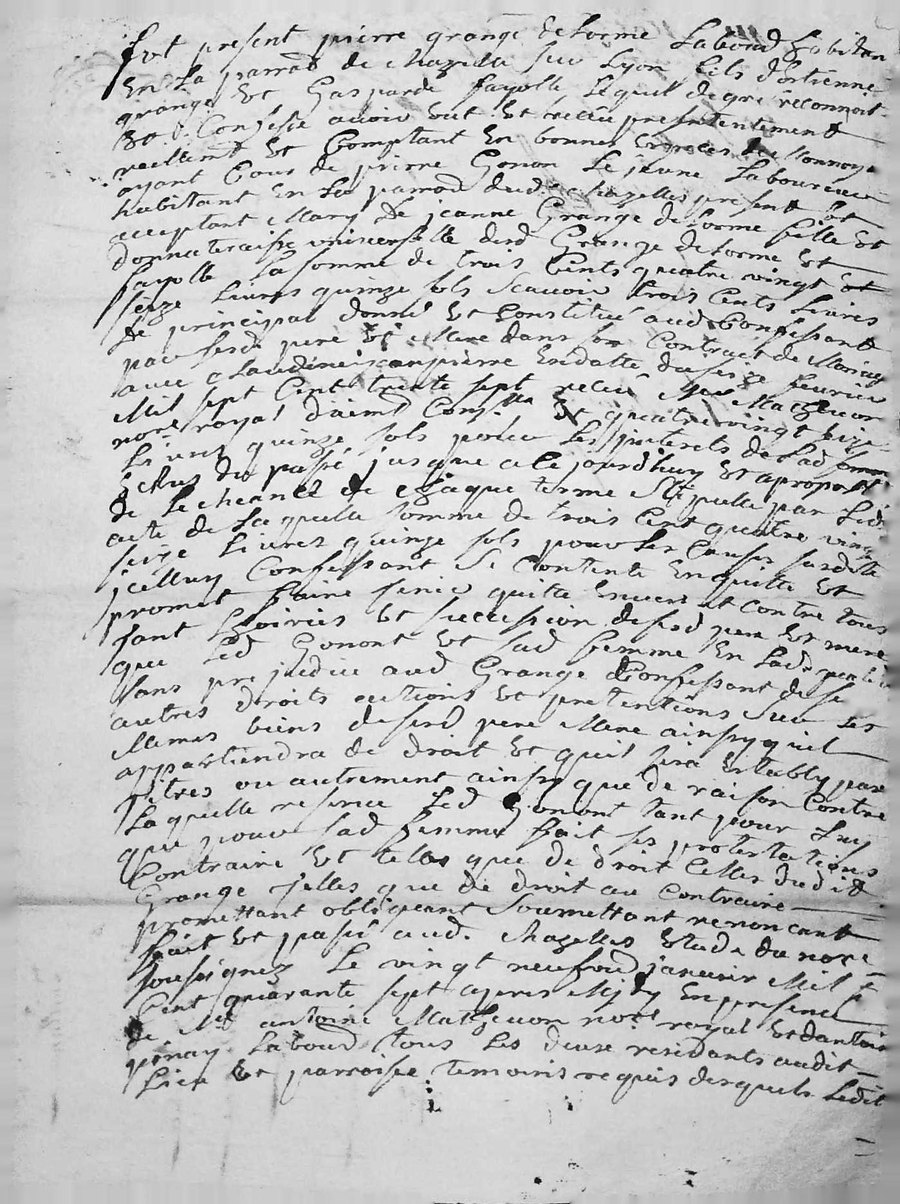 fut present pierre grange delorme Laboud habitan
En La parrod de chazelle sur Lyon fils d'Estienne
grange Et Gasparde fayolle Lequel degré reconnoit
Et Confesse avoir Eut Et reccu presentement
reellemt Et Comptant En bonnes Especes de monnoye
ayant Cours de pierre Gonon Le jeune Laboureur
habitant En La parrod dud chazelles present Et
acceptant Mary de jeanne Grange delorme fille Et
donnataire universelle desd Grange delorme Et
fayolle La somme de trois Cents quatre vingt Et
seize Livres quinze sols scavoir trois Cents Livres
de principal donné Et Constitué aud Confessant
par lesd pere Et Mere dans son Contract de Mariage
avec Claudine En datte du seize feuvrier
Mil sept Cent trente sept receu Me Matheuon
nore royal Et quatre vingt seize
Livres quinze sols pour Les jnterets de Lad somme
Echus du passé jusque a Cejourdhuy Et aproportion
de Lecheance de chaque terme Stipulle par Led
acte de Laquelle somme de trois Cent quatre vingt
seize Livres quinze sols pour Les Causes susdite
jcelluy Confessant Se Contente En quitte Et
promet faire tenir quitte Envers Et Contre tous
tant hoiries Et succession desd pere Et mere
que Led Gonont Et sad femme En Lad
sans prejudice aud Grange Confessant de se
autres droits actions Et pretentions sur Les
Memes biens desd pere Mere ainsy quil
appartiendra de droit Et quil sera Estably par
titres ou autrement ainsy que de raison Contre
Laquelle reserve Led Gonont tant pour Luy
que pour sad femme fait ses protestations
Contraire Et telles que de droit Celles dudit
Grange telles que de droit au Contraire
promettant obligeant Soumettant renoncant
fait Et passé aud. Chazelles Etude du nore
Soussignez Le vingt neufvie janvier Mil s
Cent quarante sept apres Midy En presence
de Me antoine Matheuon nore royal Et dantoine
pinay Laboud tous Les deux residants audit
Lieu Et parroisse temoins requis desquels Ledit